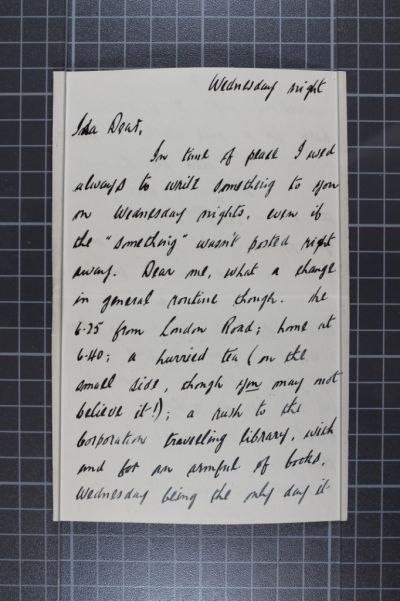 Wednesday night
Ida Dear,
In time of peace I used
always to write something to you
on Wednesday nights, even if
the "something" wasn't posted right
away. Dear me, what a change
in general routine though. The
6-35 from London Road; home at
6-40; a hurried tea (on the
small side, though you may not
believe it!); a rush to the
Corporation travelling library, with
and for an armful of books,
Wednesday being the only day it